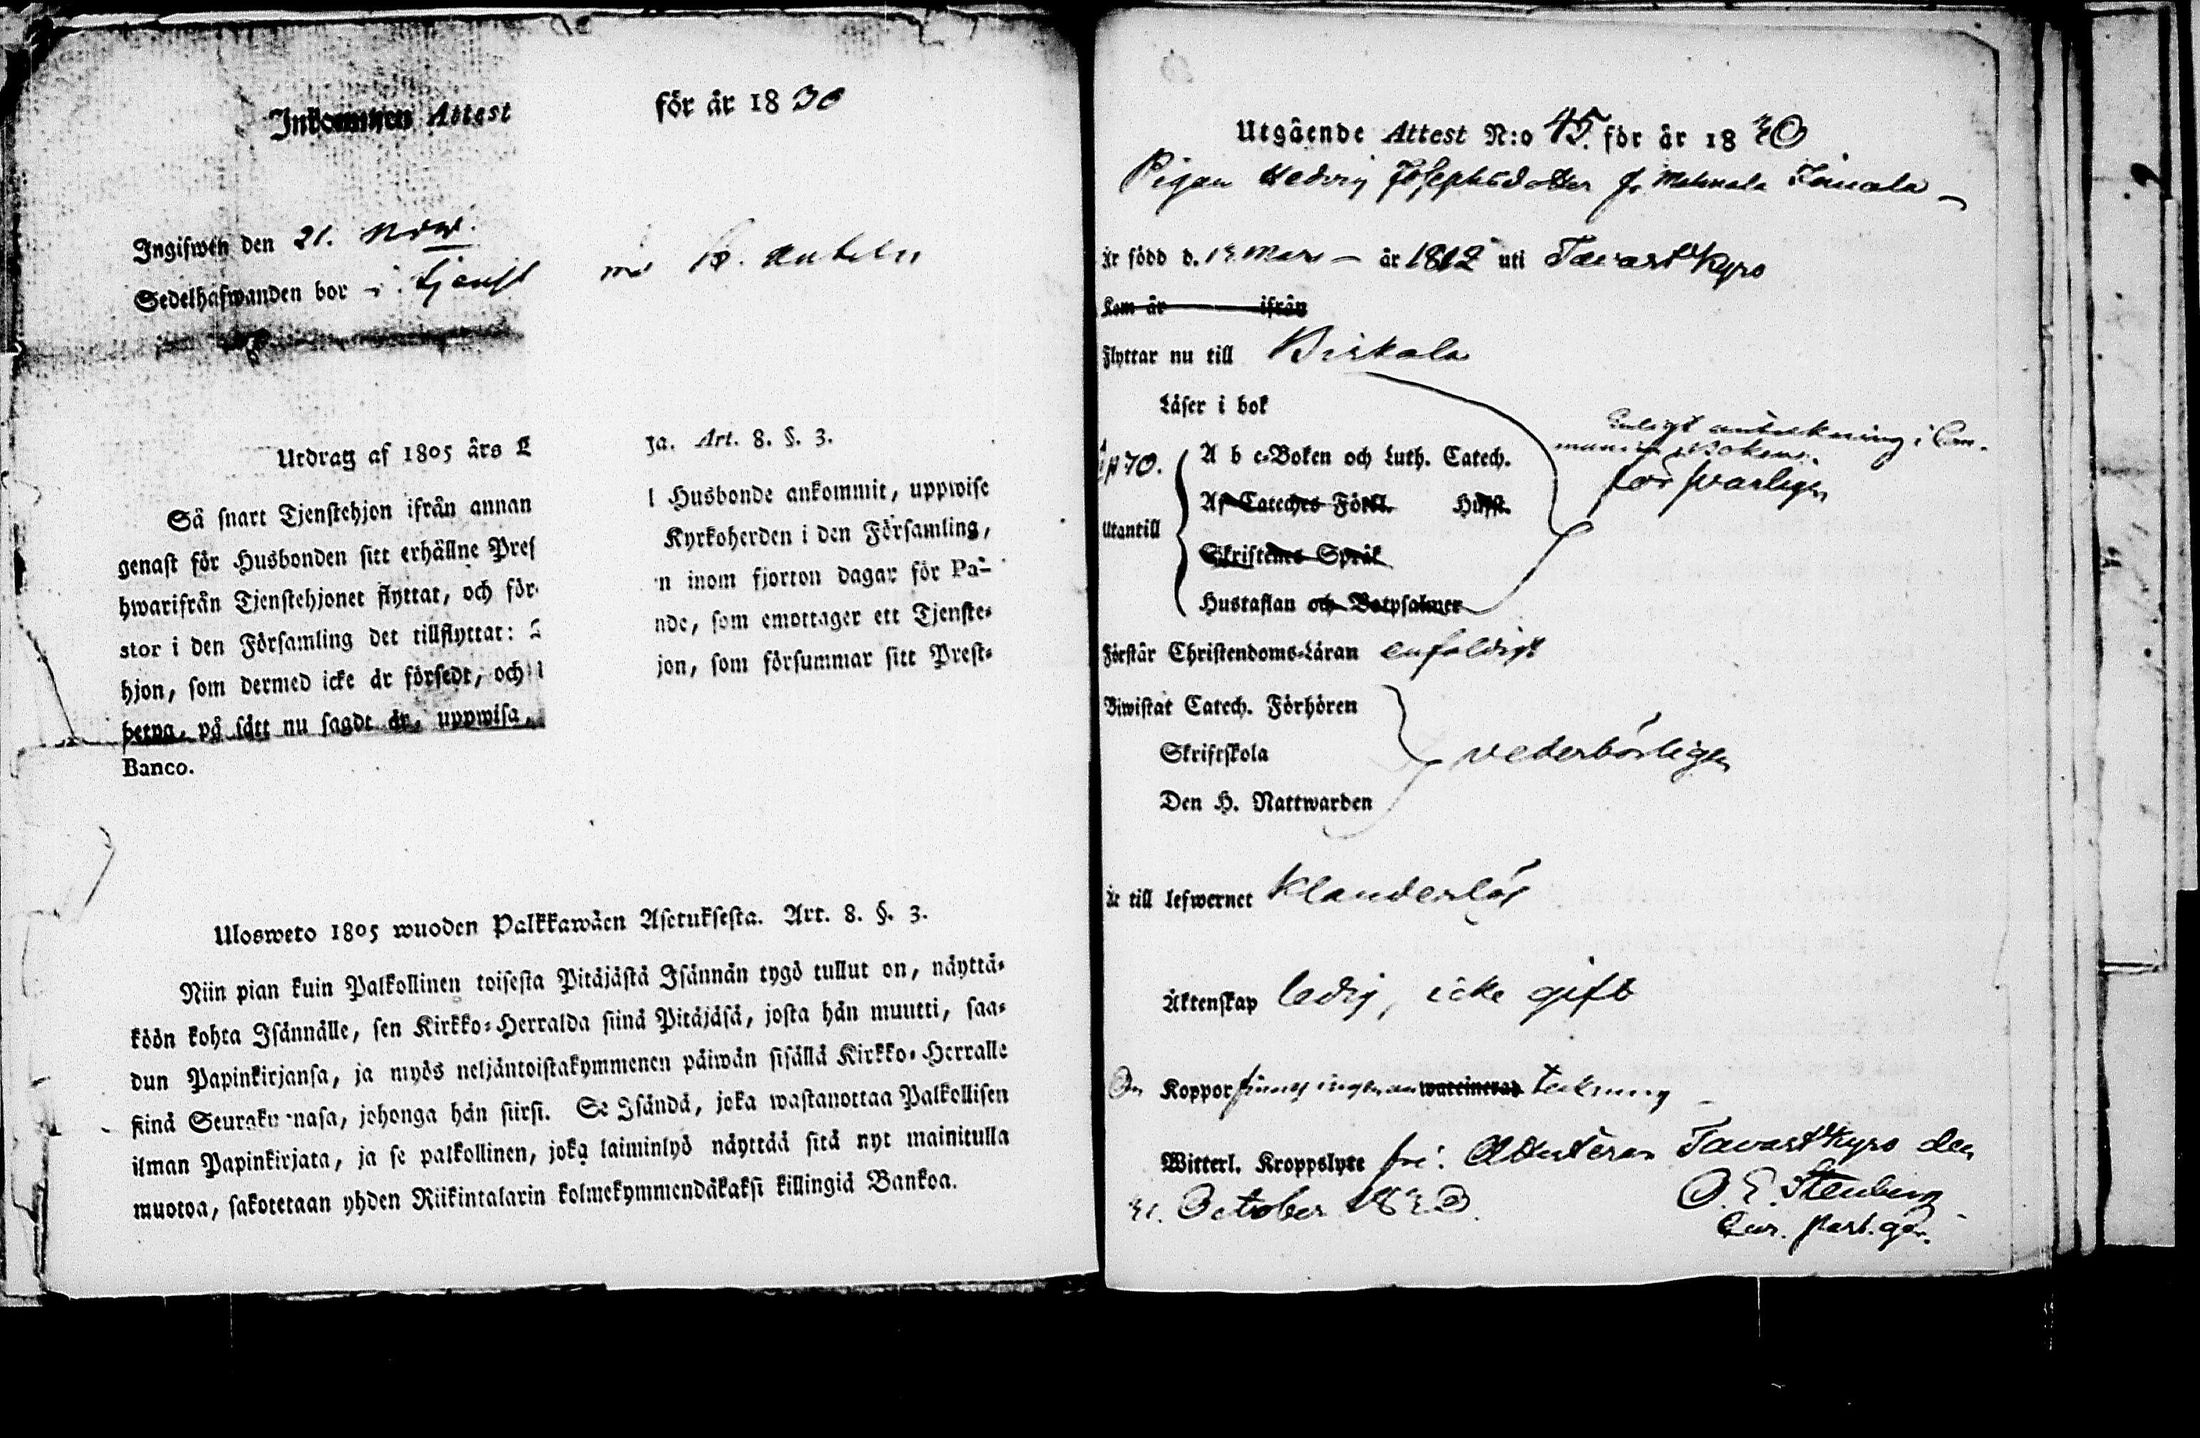 Inkommen Attest för år 1830
Ingifwen den 21. Novr.
Sedelhafwanden bor i tjenst
Utdrag af 1805 års L
ja. Art. 8. §. 3.
Så snart Tjenstehjon ifrån annan
l Husbonde ankommit, uppwise
genast för Husbonden sitt erhållne Pres
Kyrkoherden i den Församling,
hwarifrån Tjenstehjonet flyttat, och för
n inom fjorton dagar för Pa-
stor i den Församling det tillflyttat:
nde, som emottager ett Tjenste-
hjon, som dermed icke är försedt, och
jon, som försummar sitt Prest-
betyg, på sätt nu sagdt är, uppwisa,
Banco.
Ulosweto 1805 wuoden Palkkawäen Asetuksesta. Art. 8. §. 3.
Niin pian kuin Palkollinen toisesta Pitäjästä Isännän tygö tullut on, näyttä-
köön kohta Isännälle, sen Kirkko-Herralda siinä Pitäjäsä, josta hän muutti, saa-
dun Papinkirjansa, ja myös neljäntoistakymmenen päiwän sisällä Kirkko-Herralle
siinä Seurakunnasa, johonga hän siirsi. Se Isändä, joka wastanottaa Palkollisen
ilman Papinkirjata, ja se palkollinen, joka laiminlyö näyttää sitä nyt mainitulla
muotoa, sakotetaan yhden Riikintalarin kolmekymmendäkaksi killingiä Bankoa.
Utgående Attest N:o 45. för år 1830
Pigan Hedvig Josephsdotter fr. Mahnala
är född d. Mars år 1812 uti Tavastkyro
Kom år ifrån
Flyttar nu till Birkala
Läser i bok
A b c-Boken och Luth. Catech.
Enligt anteckning i Com-
munion Boken
försvarligen
Af Cateches Förkl. Hustfl.
Utantill
Skriftenes Språk
Hustaflan och Botpsalmer
Förstår Christendoms-Läran enfaldigt
Biwistat Catech. Förhören
Skriftskola
vederbörligen
Den H. Nattwarden
Är till lefwernet klanderlös
Äktenskap ledig, icke gift
Om Koppor finnes ingen an waccinerad teckning
Witterl. Kroppslyte fri. Attesteras Tavastkyro den
31. October 1830.
O. E. Stenberg